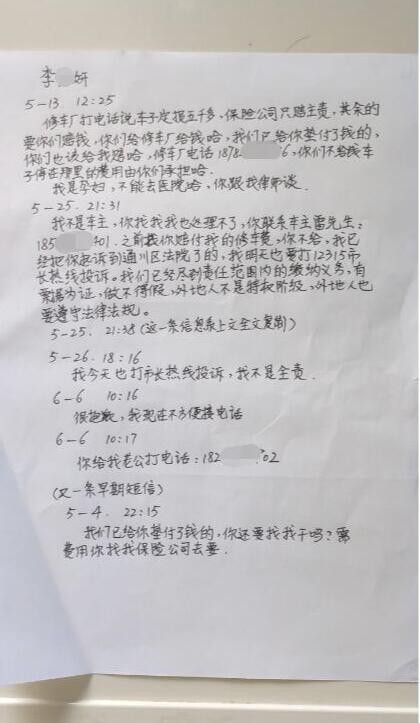 李 妍
5-13 12:25
修车厂打电话说车子定损五千多,保险公司只赔主责,其余的
要你们赔钱,你们给修车厂给钱哈,我们已给你垫付了钱的,
你们也该给我赔哈,修车厂电话1878 6,你们不给钱车
子停在那里的费用由你们承担哈.
我是孕妇,不能去医院哈,你跟我律师谈.
5-25. 21:31
我不是车主,你找我我也处理不了,你联系车主雷先生:
185 401. 之前我你赔付我的修车费,你不给,我已
经把你起诉到通川区法院了的,我明天也要打12315市
长热线投诉。我们已经尽到责任范围内的缴纳义务,有
票据为证,做不得假,外地人不是特权阶级,外地人也
要遵守法律法规。
5-25. 21:38(这一条信息系上文全文复制)
5-26. 18:16
我今天也打市长热线投诉,我不是全责.
6-6 10:16
很抱歉,我现在不方便接电话
6-6 10:17
你给我老公打电话:182 02
(又一条早期短信)
5-4. 22:15
我们已给你垫付了钱的,你还要找我干吗?需
费用你找我保险公司去要.